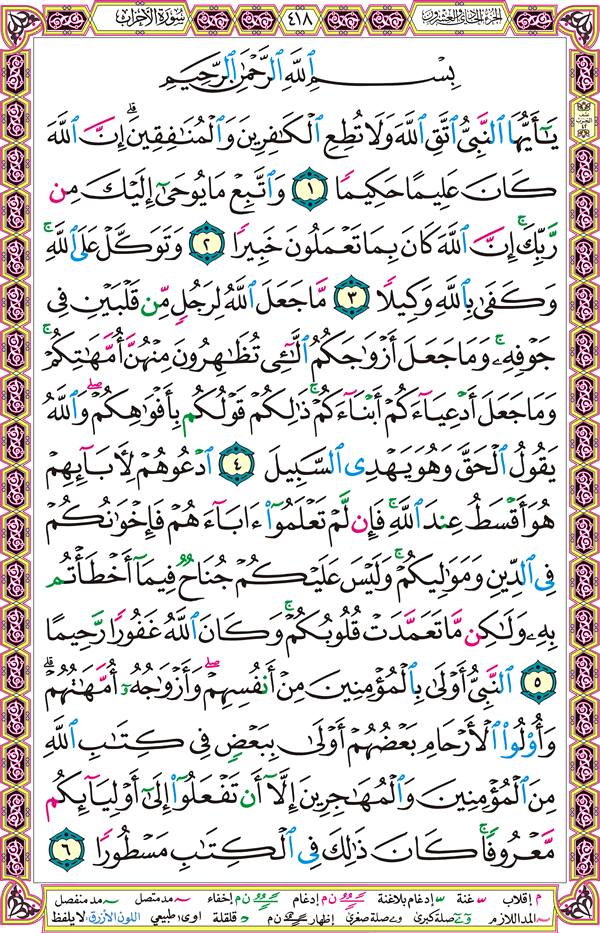 الجزء الحادي والعشرون
٤١٨
سورة الأحزاب
بِسْمِ ٱللَّهِ ٱلرَّحْمَٰنِ ٱلرَّحِيمِ
يَٰٓأَيُّهَا ٱلنَّبِيُّ ٱتَّقِ ٱللَّهَ وَلَا تُطِعِ ٱلْكَٰفِرِينَ وَٱلْمُنَٰفِقِينَۗ إِنَّ ٱللَّهَ
كَانَ عَلِيمًا حَكِيمًا ١ وَٱتَّبِعْ مَا يُوحَىٰٓ إِلَيْكَ مِن
رَّبِّكَۚ إِنَّ ٱللَّهَ كَانَ بِمَا تَعْمَلُونَ خَبِيرًا ٢ وَتَوَكَّلْ عَلَى ٱللَّهِۚ
وَكَفَىٰ بِٱللَّهِ وَكِيلًا ٣ مَّا جَعَلَ ٱللَّهُ لِرَجُلٍ مِّن قَلْبَيْنِ فِي
جَوْفِهِۦۚ وَمَا جَعَلَ أَزْوَٰجَكُمُ ٱلَّٰٓـِٔي تُظَٰهِرُونَ مِنْهُنَّ أُمَّهَٰتِكُمْۚ
وَمَا جَعَلَ أَدْعِيَآءَكُمْ أَبْنَآءَكُمْۚ ذَٰلِكُمْ قَوْلُكُم بِأَفْوَٰهِكُمْۖ وَٱللَّهُ
يَقُولُ ٱلْحَقَّ وَهُوَ يَهْدِي ٱلسَّبِيلَ ٤ ٱدْعُوهُمْ لِأٓبَآئِهِمْ
هُوَ أَقْسَطُ عِندَ ٱللَّهِۚ فَإِن لَّمْ تَعْلَمُوٓا۟ ءَابَآءَهُمْ فَإِخْوَٰنُكُمْ
فِي ٱلدِّينِ وَمَوَٰلِيكُمْۚ وَلَيْسَ عَلَيْكُمْ جُنَاحٌ فِيمَآ أَخْطَأْتُم
بِهِۦ وَلَٰكِن مَّا تَعَمَّدَتْ قُلُوبُكُمْۚ وَكَانَ ٱللَّهُ غَفُورًا رَّحِيمًا
٥ ٱلنَّبِيُّ أَوْلَىٰ بِٱلْمُؤْمِنِينَ مِنْ أَنفُسِهِمْۖ وَأَزْوَٰجُهُۥٓ أُمَّهَٰتُهُمْۗ
وَأُو۟لُوا۟ ٱلْأَرْحَامِ بَعْضُهُمْ أَوْلَىٰ بِبَعْضٍ فِي كِتَٰبِ ٱللَّهِ
مِنَ ٱلْمُؤْمِنِينَ وَٱلْمُهَٰجِرِينَ إِلَّآ أَن تَفْعَلُوٓا۟ إِلَىٰٓ أَوْلِيَآئِكُم
مَّعْرُوفًاۚ كَانَ ذَٰلِكَ فِي ٱلْكِتَٰبِ مَسْطُورًا ٦
م إقلاب غنة إدغام بلاغنة ن م إدغام ن م إخفاء مد متصل مد منفصل
المد اللازم صلة كبرى صلة صغرى إظهار ن م قلقلة اوى طبيعي اللون الأزرق: لا يلفظ